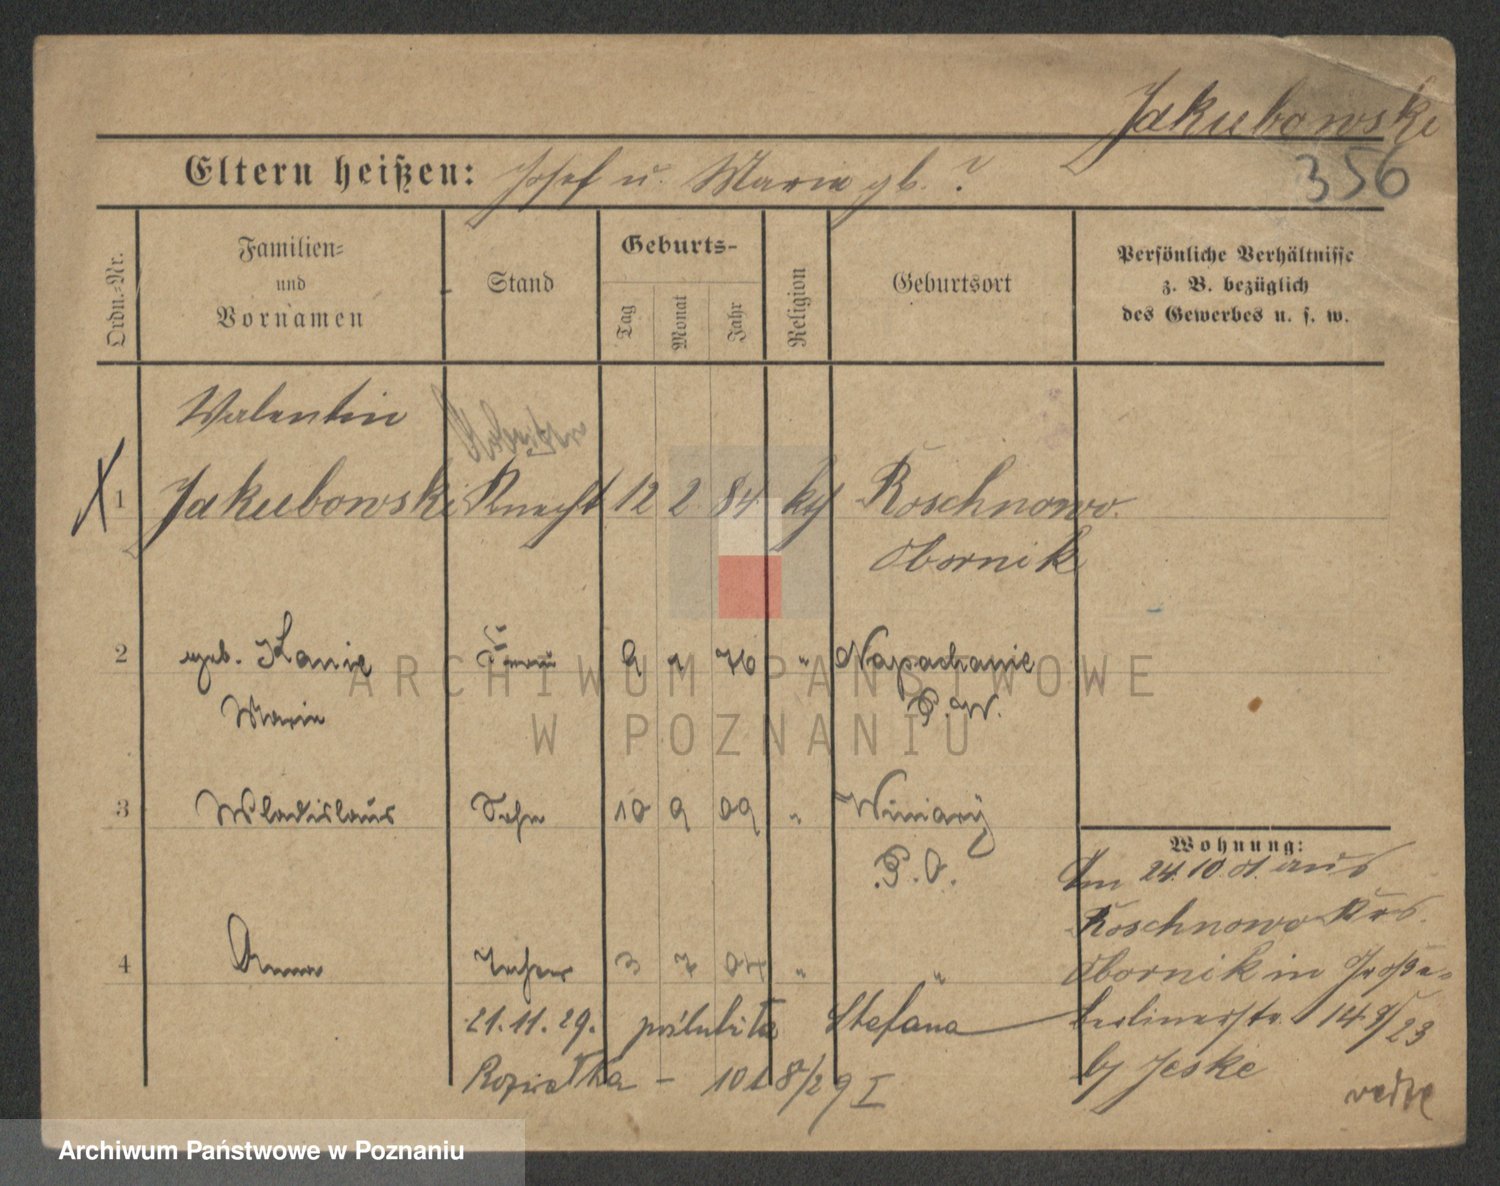 Jakubowski
356
Eltern heißen: Josef u. Maria gb. ?
Ordn.-Nr.
Familien-
und
Vornamen
Stand
Geburts-
Tag
Monat
Jahr
Religion
Geburtsort
Persönliche Verhältnisse
z. B. bezüglich
des Gewerbes u. s. w.
Valentin Arbeiter
1 Jakubowski Knecht 12 2 84 kth Roschnowo
Obornik
2 geb. Kanie Frau 9 1 76 " Napachanie
Maria P. W.
3 Wladislaus Sohn 10 9 09 " Winiary
P. O.
4 Anna Tochter 3 7 04 " "
21.11.29. poślubiła Stefana
Rozwiałka - 101 8/29 I
Wohnung:
Am 24.10.01. aus
Roschnowo Krs.
Obornik in Große
berlinerstr. 14
by Jeske
ARCHIWUM PAŃSTWOWE
W POZNANIU
Archiwum Państwowe w Poznaniu